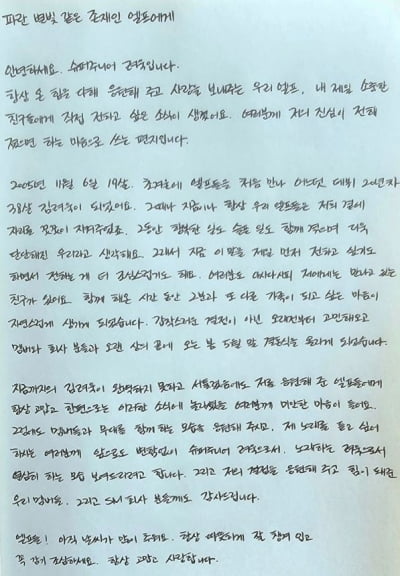 파란 별빛 같은 존재인 엘프에게
안녕하세요. 슈퍼주니어 려욱입니다.
항상 온 힘을 다해 응원해 주고 사랑을 보내주는 우리 엘프, 내 제일 소중한
친구들에게 직접 전하고 싶은 소식이 생겼어요. 여러분께 저의 진심이 전해
졌으면 하는 마음으로 쓰는 편지입니다.
2005년 11월 6일 19살. 초겨울에 엘프들을 처음 만나 어느덧 데뷔 20년차
38살 김려욱이 되었어요. 그때나 지금이나 항상 우리 엘프들은 저의 곁에
자리를 꿋꿋이 지켜주었죠. 그동안 행복한 일도 슬픈 일도 함께 겪으며 더욱
단단해진 우리라고 생각해요. 그래서 지금 이 말을 제일 먼저 전하고 싶기도
하면서 전하는 게 더 조심스럽기도 해요. 여러분도 아시다시피 저에게는 만나고 있는
친구가 있어요. 함께 해온 시간 동안 그분과 또 다른 가족이 되고 싶은 마음이
자연스럽게 생기게 되었습니다. 갑작스러운 결정이 아닌 오래전부터 고민해오고
멤버와 회사 분들과 오랜 상의 끝에 오는 봄 5월 말 결혼식을 올리게 되었습니다.
지금까지의 김려욱이 완벽하지 못하고 서툴렀음에도 저를 응원해 준 엘프들에게
항상 고맙고 한편으로는 이러한 소식에 놀라웠을 여러분께 미안한 마음이 들어요.
그럼에도 멤버들과 무대를 함께 하는 모습을 응원해 주시고, 제 노래를 듣고 싶어
하시는 여러분께 앞으로도 변함없이 슈퍼주니어 려욱으로, 노래하는 려욱으로서
열심히 하는 모습 보여드리려고 합니다. 그리고 저의 결정을 응원해 주고 힘이 돼준
우리 멤버들, 그리고 SM 회사 분들께도 감사드립니다.
엘프들! 아직 날씨가 많이 추워요. 항상 따뜻하게 잘 챙겨 입고
꼭 감기 조심하세요. 항상 고맙고 사랑합니다.